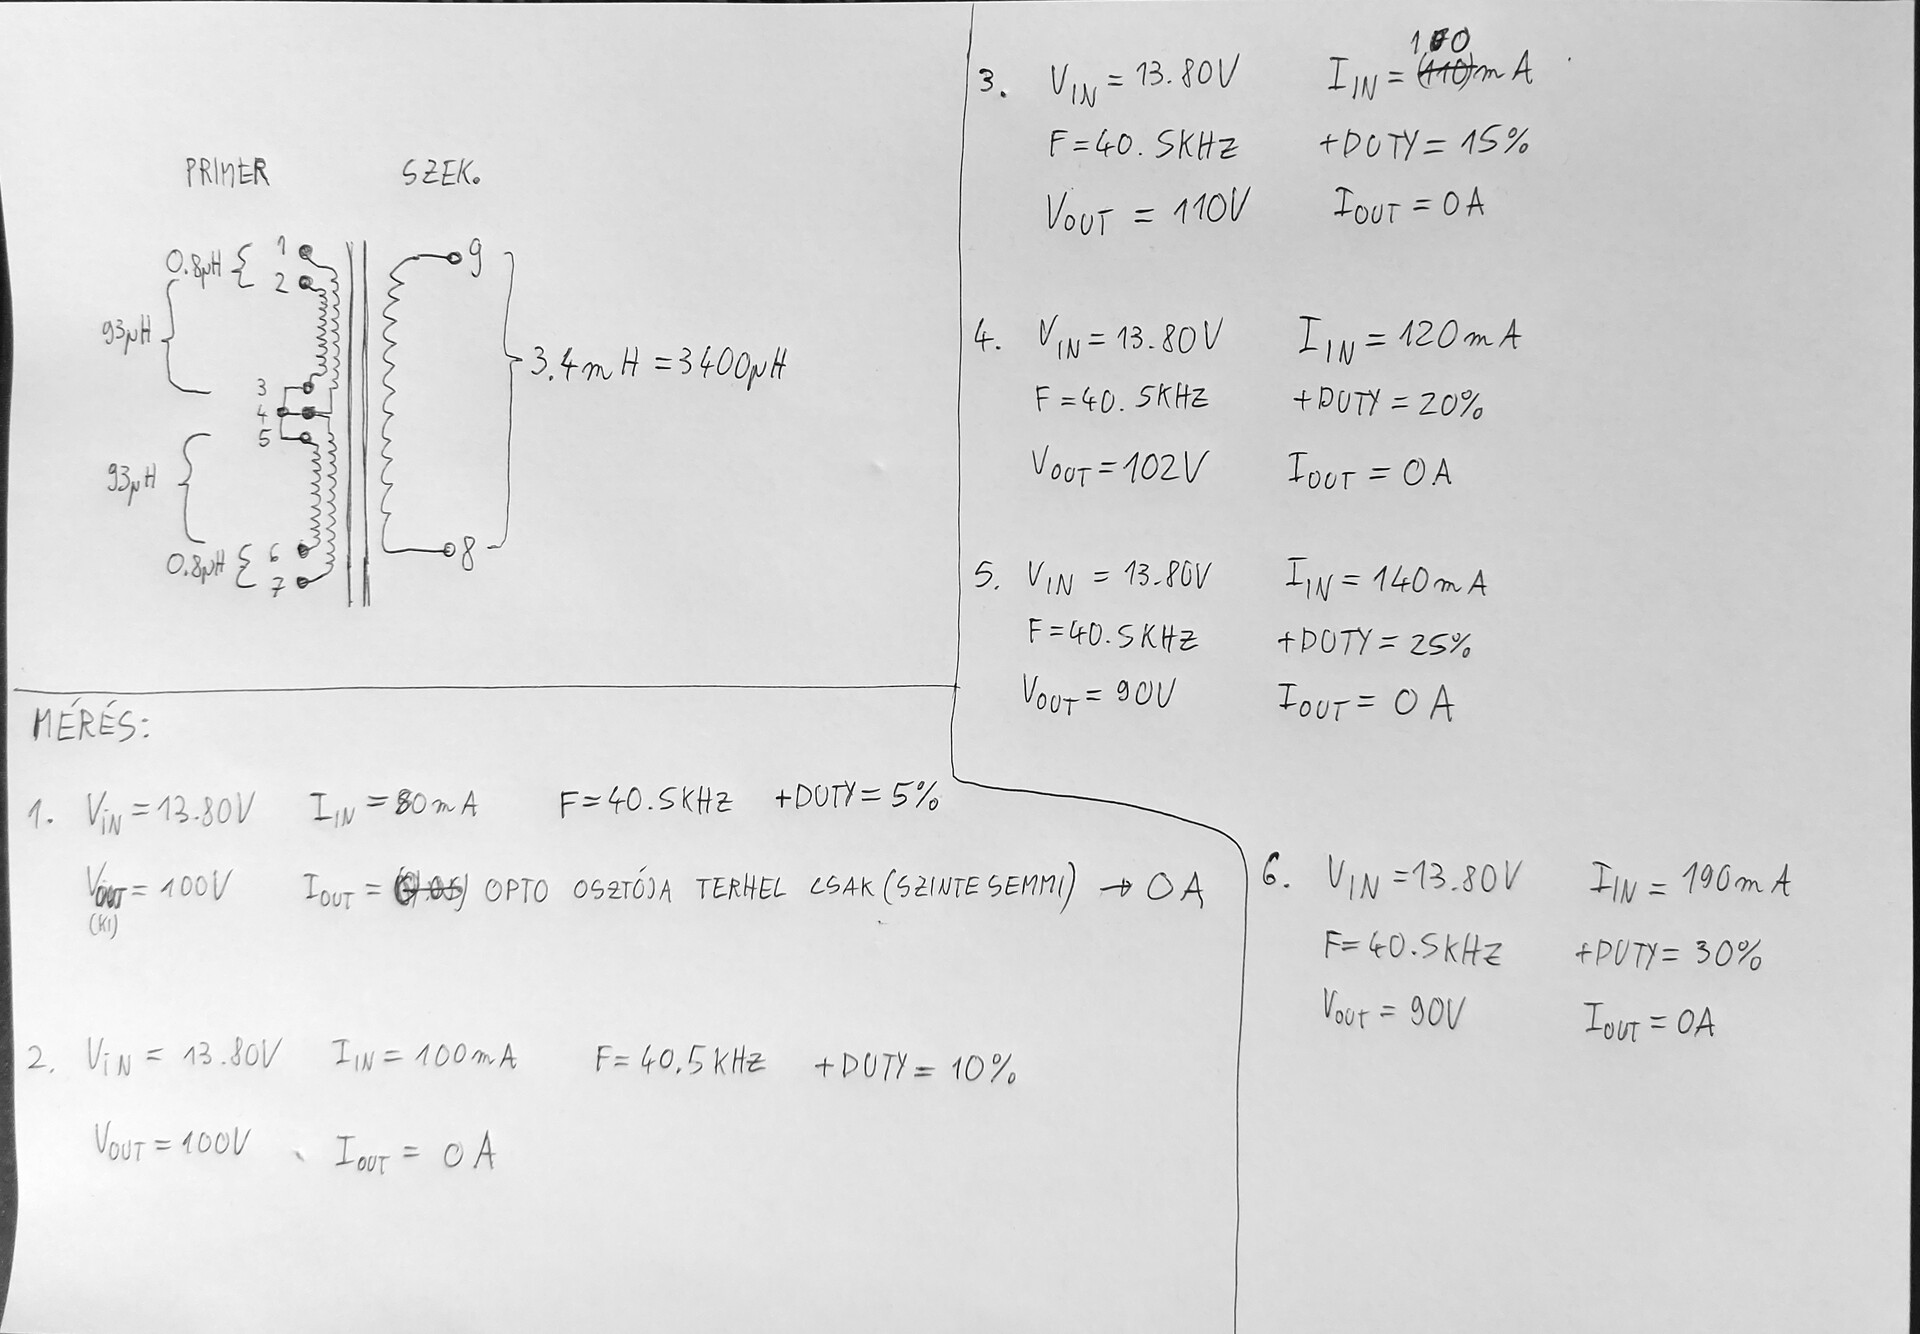 PRIMER SZEK.
0.8µH { 1
2
93µH
3
4
5
93µH
0.8µH { 6
7
9
3.4mH = 3400µH
8
MÉRÉS:
1. VIN = 13.80V IIN = 80mA F=40.5KHZ +DUTY= 5%
VOUT = 100V IOUT = OPTO OSZTÓJA TERHEL CSAK (SZINTE SEMMI) → 0A
(KI)
2. VIN = 13.80V IIN = 100mA F= 40.5KHZ +DUTY= 10%
VOUT = 100V IOUT = 0A
3. VIN = 13.80V IIN = (110)mA
F=40.5KHZ +DUTY= 15%
VOUT = 110V IOUT = 0A
4. VIN = 13.80V IIN = 120mA
F=40.5KHZ +DUTY = 20%
VOUT = 102V IOUT = 0A
5. VIN = 13.80V IIN = 140mA
F=40.5KHZ +DUTY = 25%
VOUT = 90V IOUT = 0A
6. VIN = 13.80V IIN = 190mA
F=40.5KHZ +DUTY= 30%
VOUT = 90V IOUT = 0A